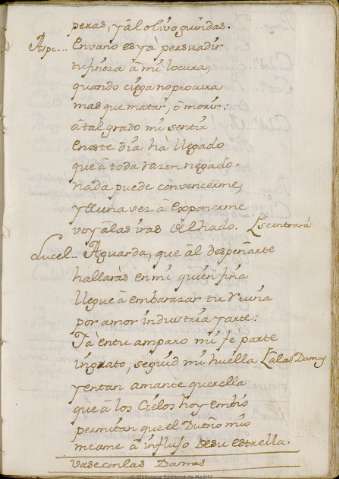 peras, y âl olivo guindas.
Aspe... En vano es yà persuadir
tu fineza â mi locura,
quando ciega no procura
mas que matar, ô morir:
â tal grado mi sentir
en este dia hà llegado
que â toda razon negado
nada puede convencerme,
y êl una vez â exponerme
voy â las iras del hado. Se entrará
Lucel... Aguarda, que âl despeñarte
hallarás en mi quien fina
llegue â embarazar tu ruina
por amor industria y arte:
Ya en tu amparo mi fe parte
ingrato, seguid mi huella A las Damas
y en tan amante querella
que â los Cielos hoy embio
permitan que el Dueño mio
me ame â influxo de su estrella.
Vase con las Damas